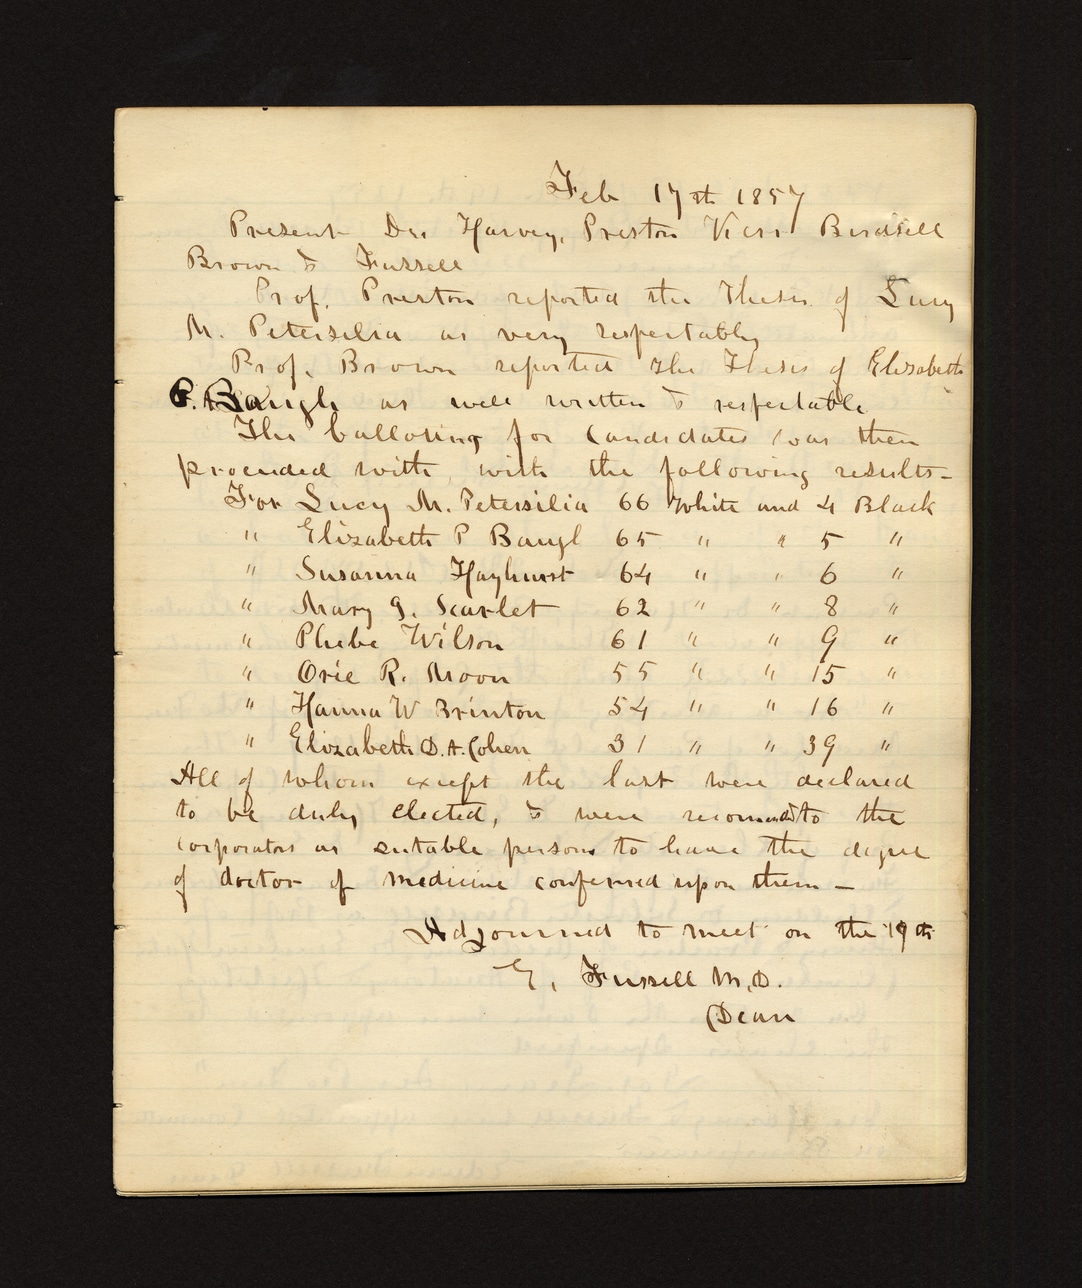 Feb 17th 1857
Present Drs Harvey, Preston Kerr Birdsell
Brown & Fussell
Prof. Preston reported the Thesis of Lucy
M. Petersilia as very respectably
Prof. Brown reported the Thesis of Elizabeth
P. Baugh as well written & respectable
The balloting for candidates was then
proceeded with, with the following results—
For Lucy M. Petersilia 66 White and 4 Black
" Elizabeth P Baugl 65 " " 5 "
" Susanna Hayhurst 64 " " 6 "
" Mary J. Scarlet 62 " " 8 "
" Phebe Wilson 61 " " 9 "
" Orie R. Moon 55 " " 15 "
" Hanna W Brinton 54 " " 16 "
" Elizabeth D. A. Cohen 31 " " 39 "
All of whom except the last were declared
to be duly elected, & were recomended to the
corporators as suitable persons to have the degree
of doctor of medicine conferred upon them—
Adjourned to meet on the 19th
E. Fussell M.D.
Dean